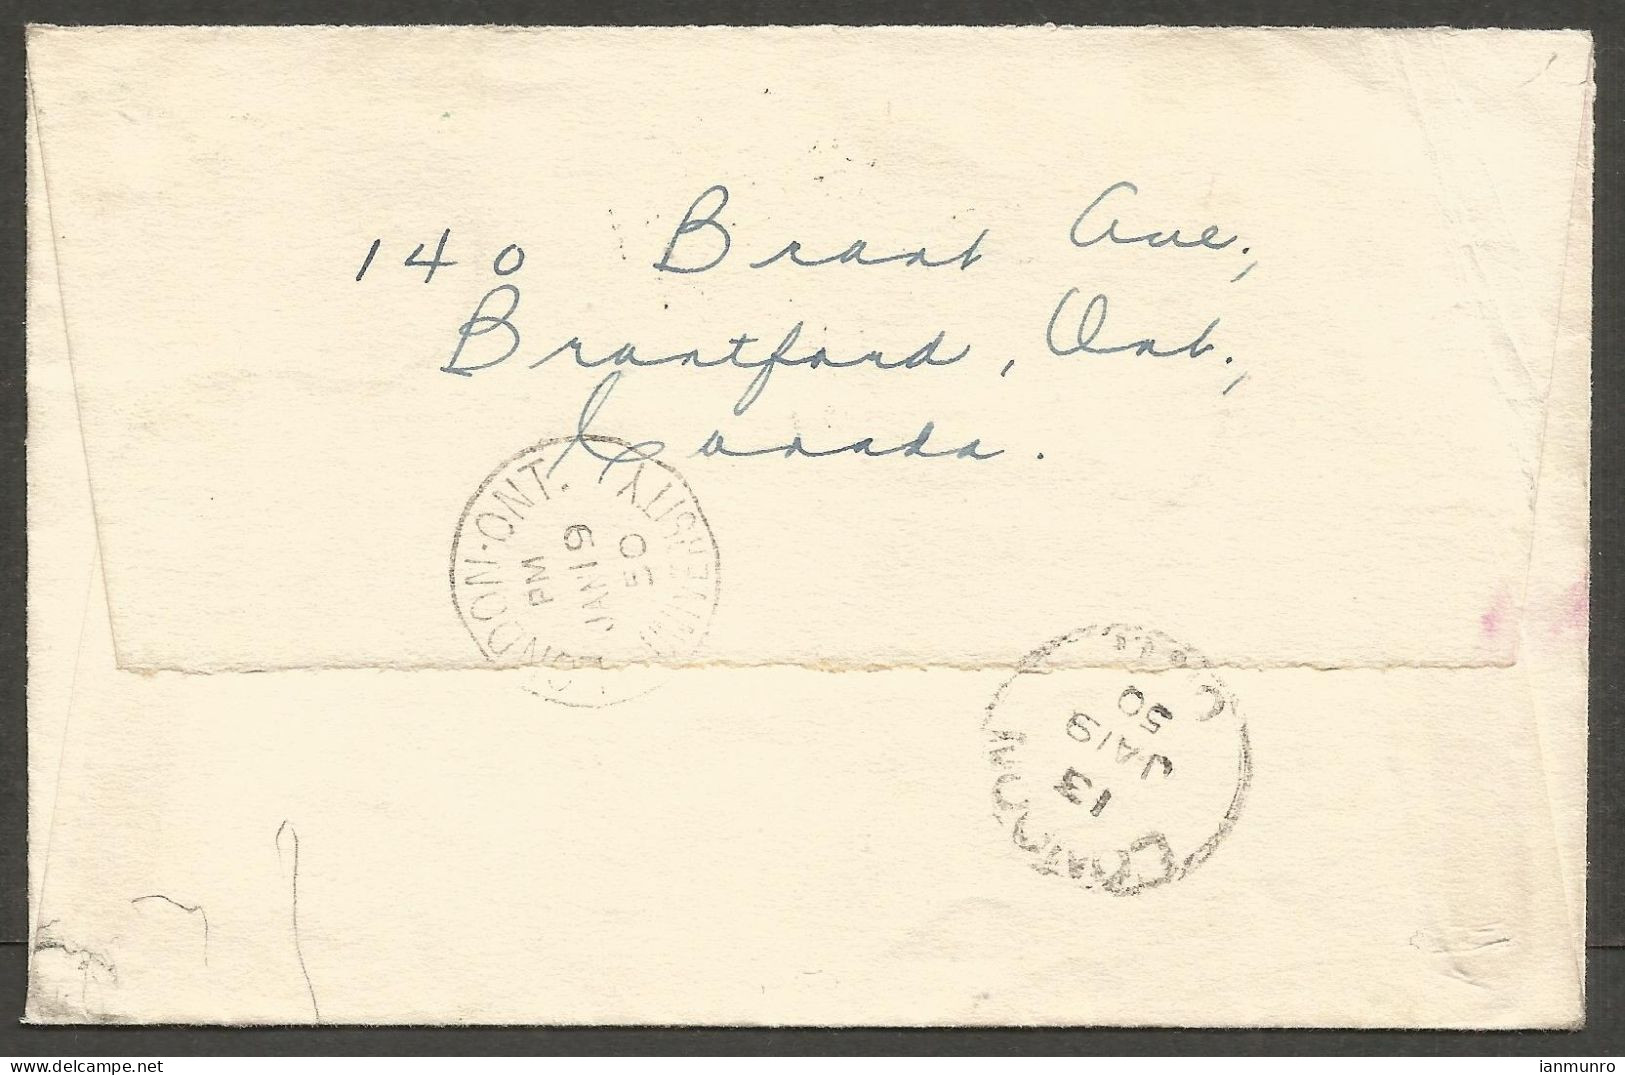 140 Brant Ave.,
Brantford, Ont.,
Canada.
LONDON·ONT.
UNIVERSITY
PM
JAN 19
50
CHATHAM
13
JA 19
50
ianmunro